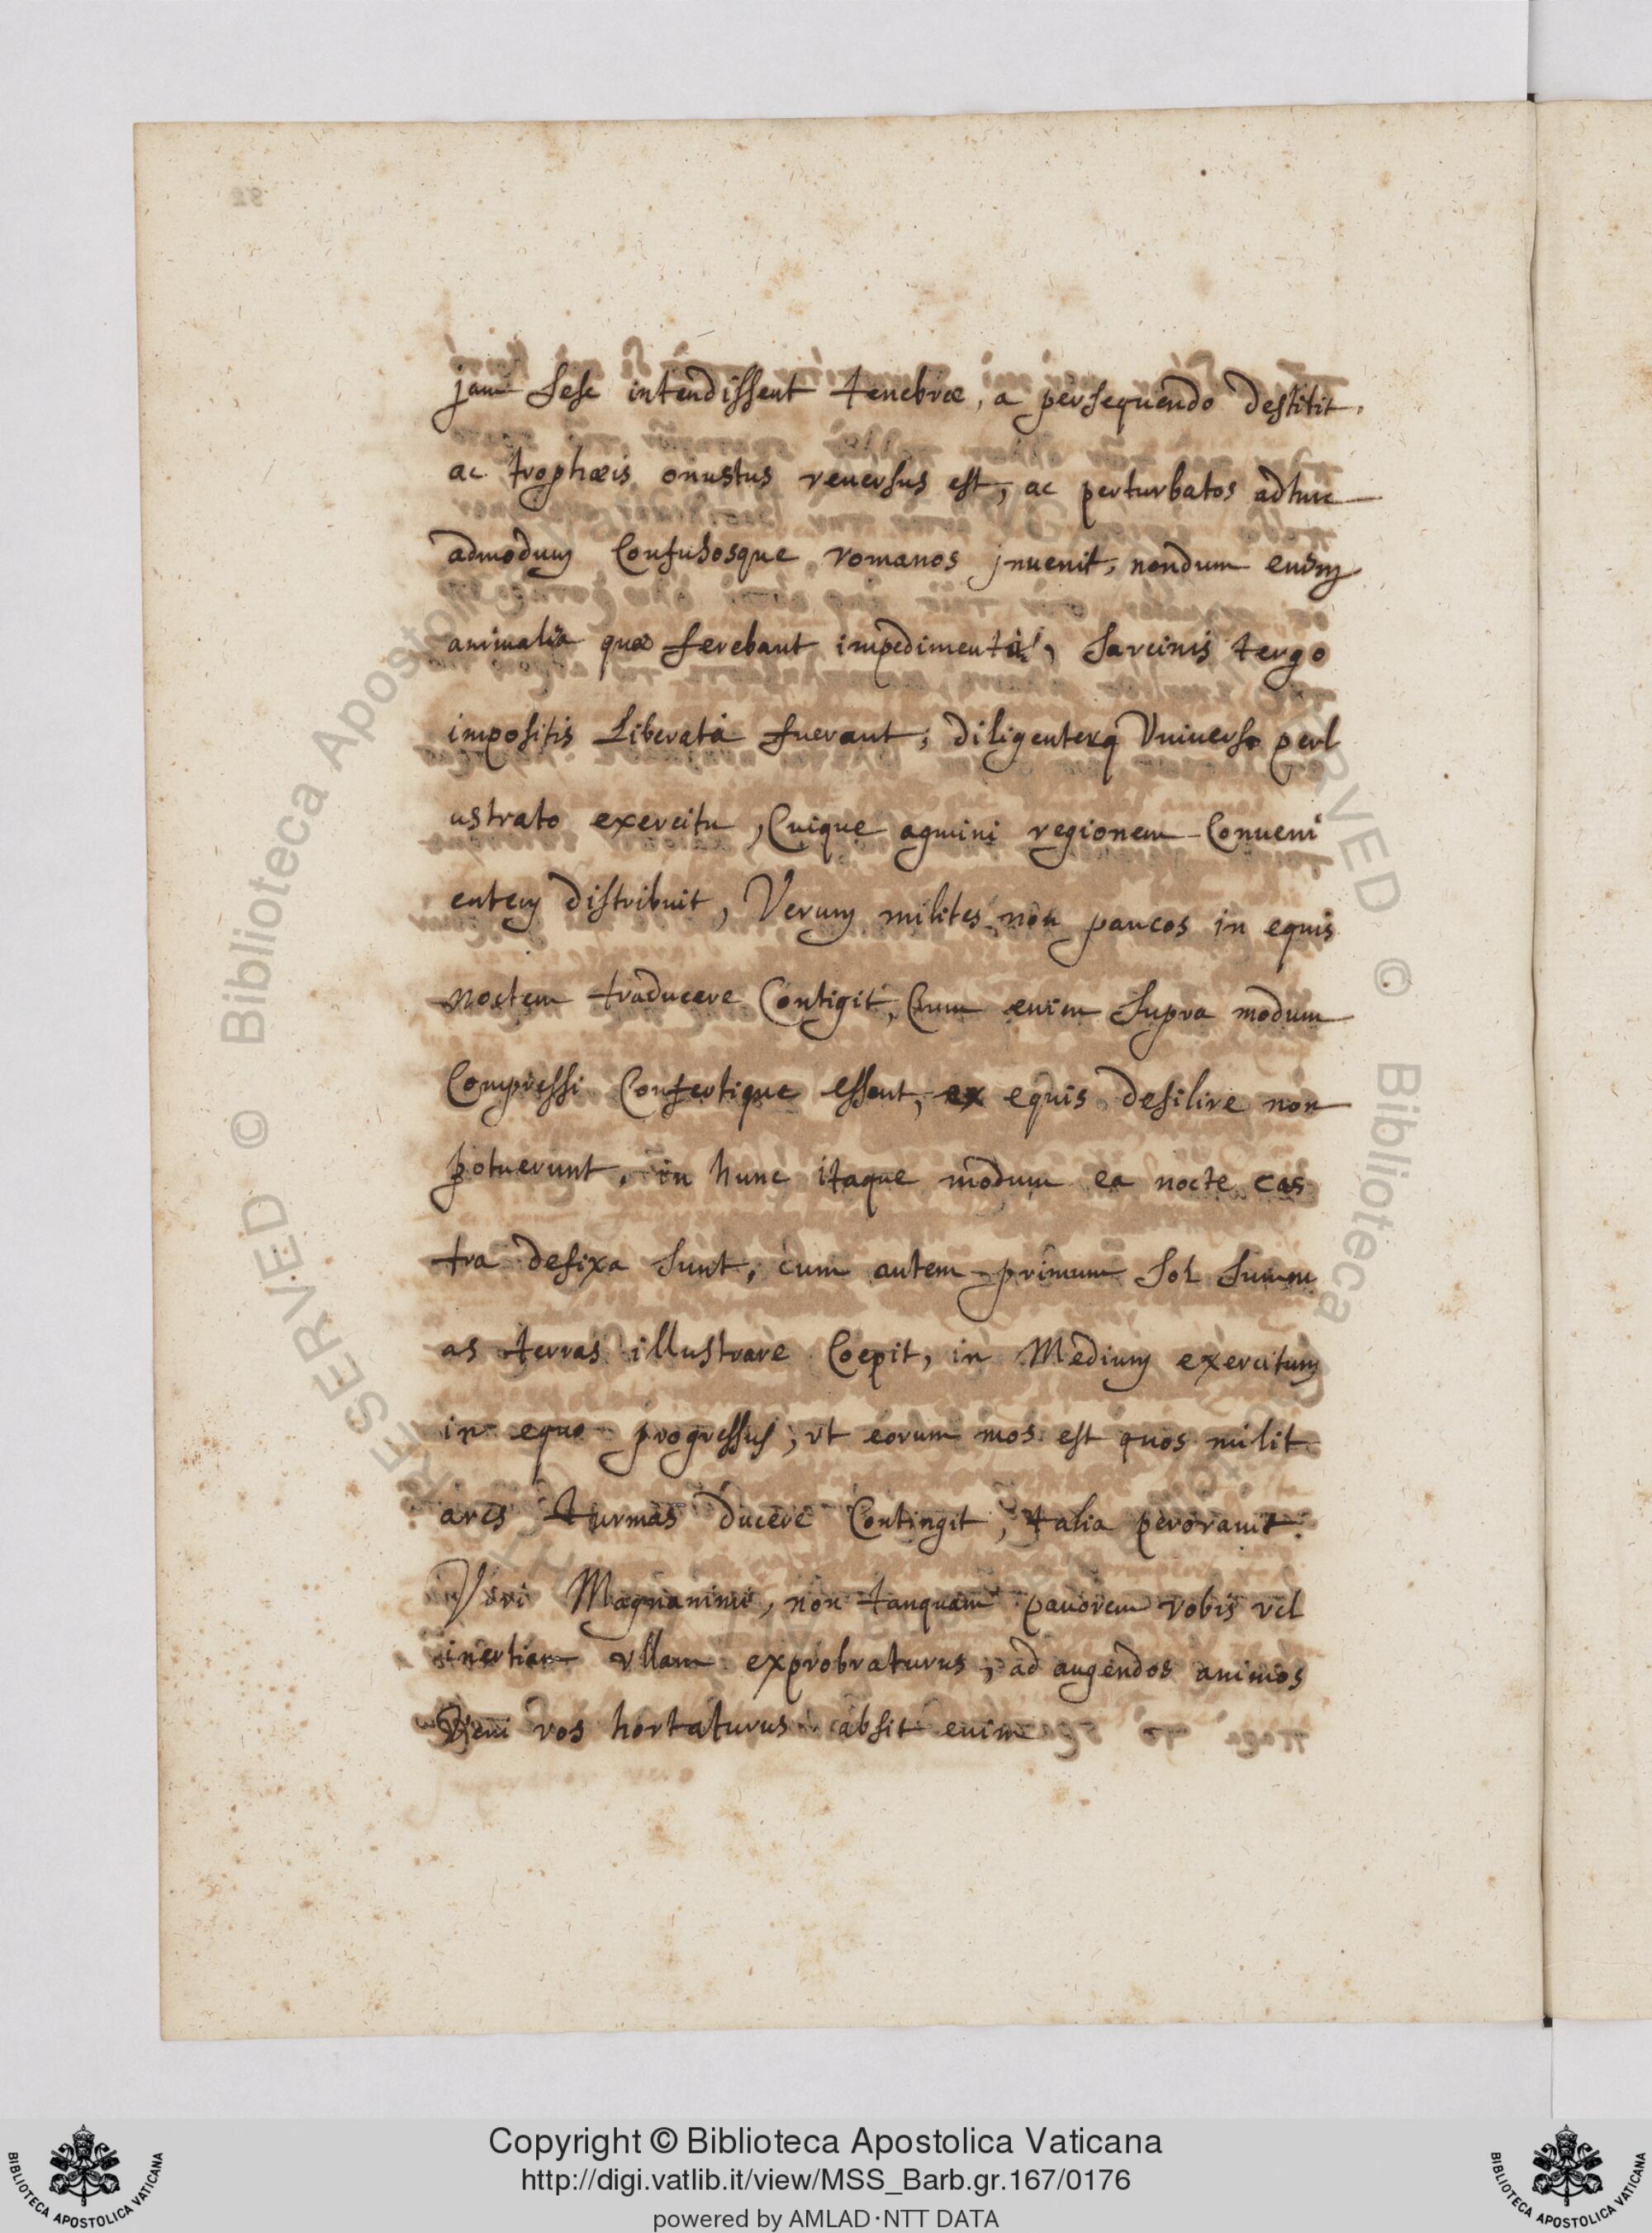 jam sese intendissent tenebræ, a persequendo destitit.
ac trophæis onustus reuersus est, ac perturbatos adhuc
admodum Confusosque romanos jnuenit, nondum enim
animalia quæ ferebant impedimentis, sarcinis tergo
impositis Liberata fuerant; diligenterq Vniuerso perl
ustrato exercitu, Cuique agmini regionem Conueni
entem distribuit, Verum milites non paucos in equis
noctem traducere Contigit, Cum enim supra modum
Compressi Confertique essent, ex equis desilire non
potuerunt. in hunc itaque modum ea nocte cas
tra defixa sunt, cum autem primum sol summ
as terras illustrare Coepit, in Medium exercitum
in equo progressus, vt eorum mos est quos milit
ares turmas ducere Contingit, talia perorauit
Viri Magnanimi, non tanquam pauorem vobis vel
inertiam vllam exprobraturus, ad augendos animos
vos hortaturus absit enim
RESERVED © Biblioteca Apostolica
RESERVED © Biblioteca Apostolica
Copyright © Biblioteca Apostolica Vaticana
http://digi.vatlib.it/view/MSS_Barb.gr.167/0176
powered by AMLAD·NTT DATA
BIBLIOTECA APOSTOLICA VATICANA
BIBLIOTECA APOSTOLICA VATICANA